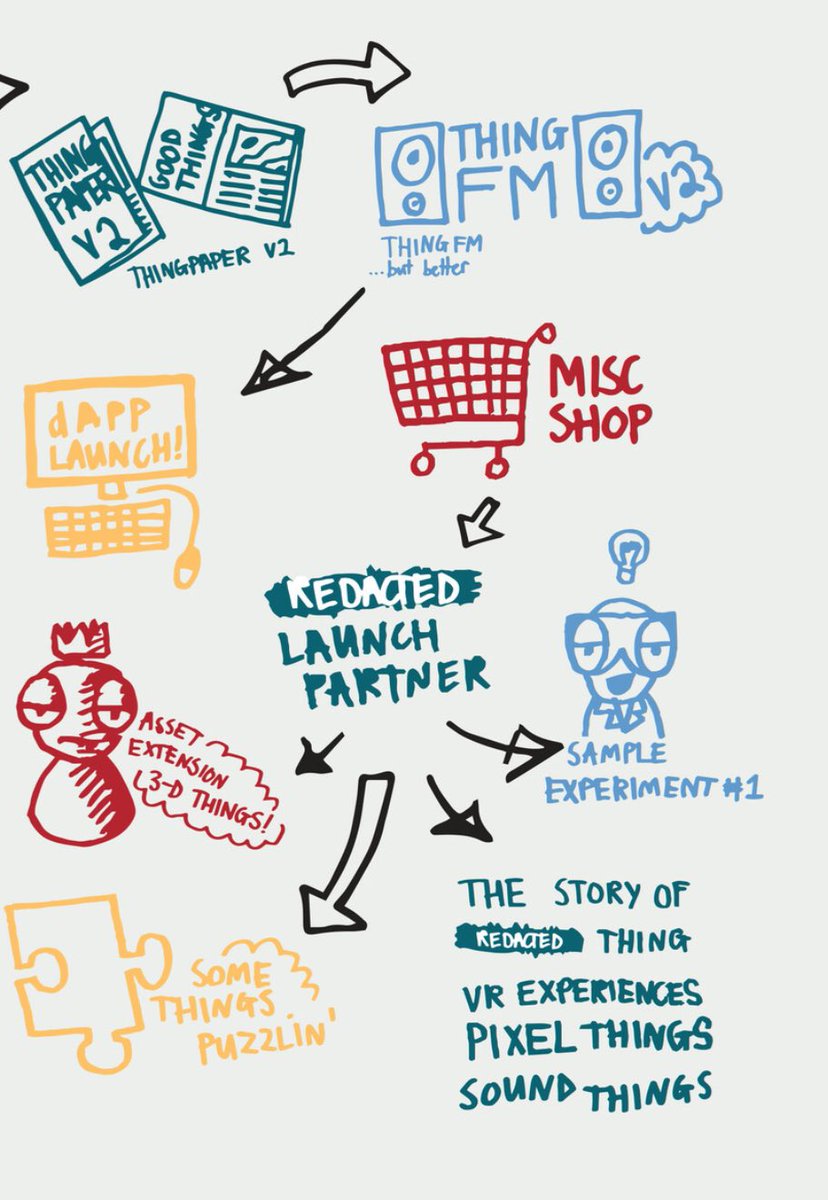 THING
PAPER
V2
GOOD
THINGS
THINGPAPER V2
THING
FM
V2
THINGFM
...but better
dAPP
LAUNCH!
MISC
SHOP
REDACTED
LAUNCH
PARTNER
ASSET
EXTENSION
L3-D THINGS!
SAMPLE
EXPERIMENT #1
SOME
THINGS
PUZZLIN'
THE STORY OF
REDACTED THING
VR EXPERIENCES
PIXEL THINGS
SOUND THINGS